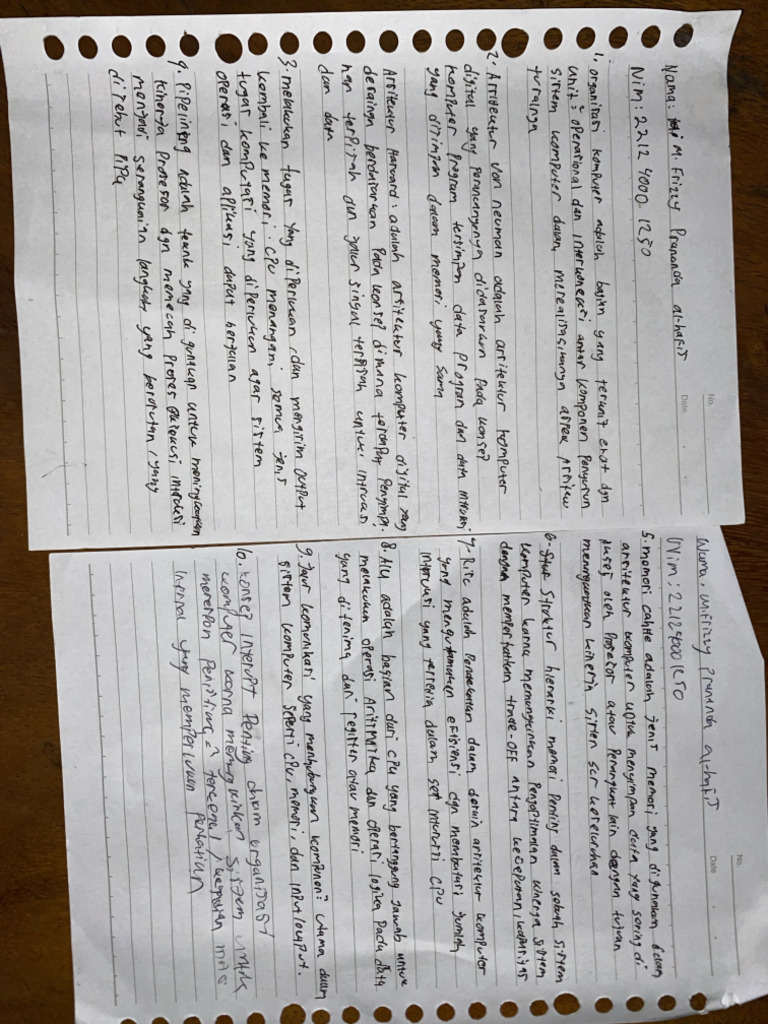 No.
Date
Nama: M. Frizzy Prananda al-hafiz
Nim: 2212 4000 1250
1. organisasi komputer adalah bagian yang terkait erat dgn
unit² operasional dan interkoneksi antar komponen Penyusun
sistem komputer dalam merealisasikannya aspek Arsitek
turalnya
2. Arsitektur Von neuman adalah arsitektur komputer
digital yang perancangannya didasarkan pada konsep
komputer program tersimpan data program dan data
yang disimpan dalam memori yang sama
Arsitektur Harvard: adalah arsitektur komputer digital yang
desainya berdasarkan pada konsep dimana tempat Penyimpa
nan terpisah dan jalur sinyal terpisah untuk intruksi
dan data
3. melakukan tugas yang diperlukan, dan mengirim output
kembali ke memori. CPU menangani semua jenis
tugas komputasi yang diperlukan agar sistem
operasi dan aplikasi dapat berjalan
4. Pipelining adalah teknik yang digunakan untuk meningkatkan
kinerja Prosesor dgn memecah Proses eksekusi intruksi
menjadi serangkaian langkah yang berurutan, yang
disebut Pipa
No.
Date
Nama: M.Frizzy Prananda al-hafiz
Nim: 221240001250
5. memori cahe adalah jenis memori yang digunakan dalam
arsitektur komputer untuk menyimpan data yang sering di
akses oleh Prosesor atau Perangkat lain dengan tujuan
meningkatkan kinerja sistem scr keseluruhan
6. Struktur hierarki memori penting dalam sebuah sistem
komputer karna memungkinkan Pengoptimalan kinerja sistem
dengan memperhatikan trade-off antara kecepatan, kapasitas
7. Risc adalah Pendekatan dalam desain arsitektur komputer
yang mengutamakan efisiensi dgn membatasi jumlah
intruksi yang tersedia dalam set intruksi CPU
8. Alu adalah bagian dari CPU yang bertanggung jawab untuk
melakukan operasi Aritmatika dan operasi logika Pada data
yang diterima dari register atau memori
9. Jalur komunikasi yang menghubungkan komponen² utama dalam
sistem komputer seperti CPU, memori, dan input/output.
10. konsep interupt Penting dalam organisasi
komputer karna memungkinkan sistem untuk
merespon peristiwa² tereksternal / kegiatan
internal yang memerlukan perhatian